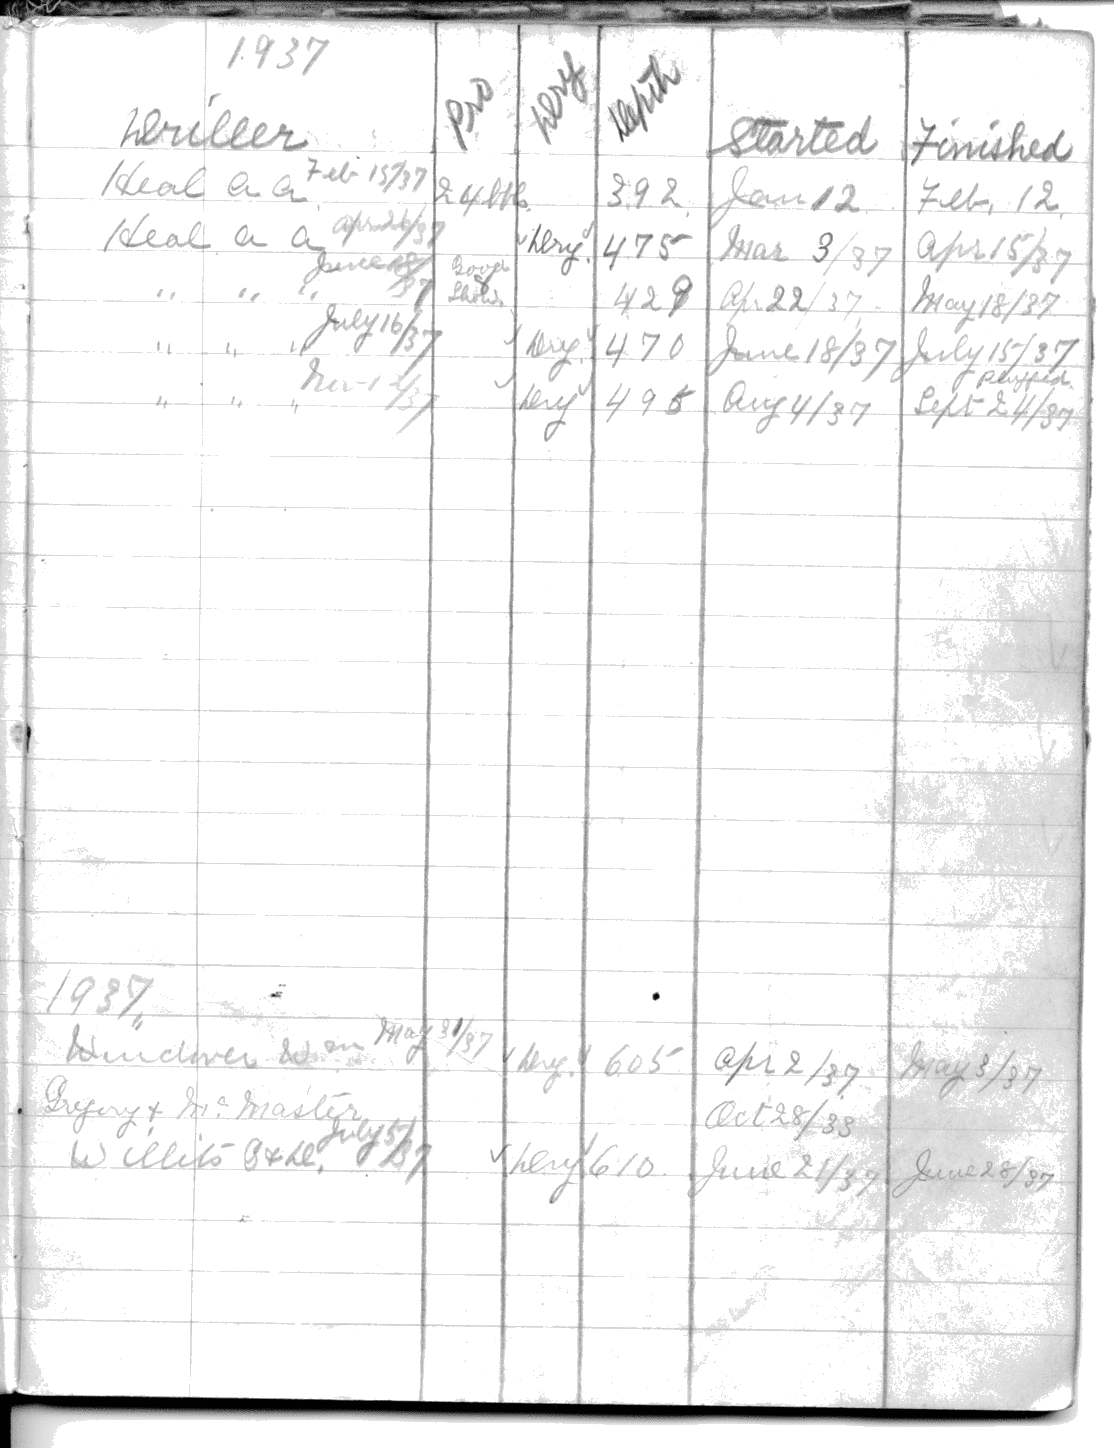 1937
Driller Pro Dry Depth Started Finished
Heal a a Feb 15/37 24 bbls. 392 Jan 12 Feb. 12
Heal a a Apr 26/37 Dry 475 Mar 3/37 Apr 15/37
" " " June 18/37 Good Show. 429 Apr 22/37 May 18/37
" " " July 16/37 Dry 470 June 18/37 July 15/37
plugged
" " " Nov 12/37 Dry 495 Aug 4/37 Sept 24/37
1937
Windover Wm May 31/37 Dry 605 Apr 2/37 May 3/37
Gregory & McMaster Oct 28/33
Willits B & D. July 5/37 Dry 610 June 21/37 June 28/37